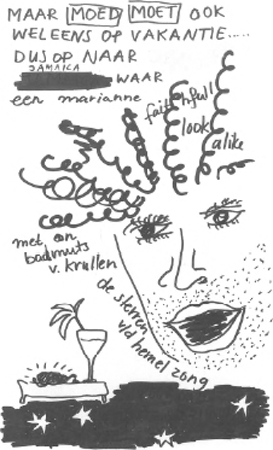 MAAR MOED MOET OOK
WEL EENS OP VAKANTIE.....
DUS OP NAAR
JAMAICA
WAAR
een marianne
faithfull
look
alike
met een
badmuts
v. krullen
de sterren
v/d hemel zong